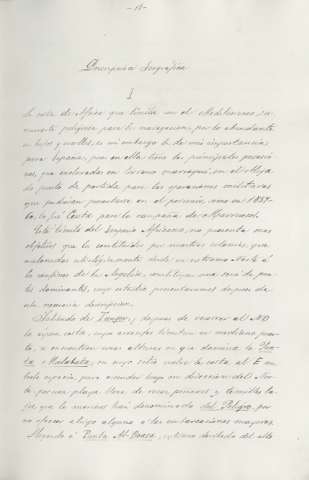 Descripción Geográfica
I
La costa de Africa que limita en el Mediterraneo, su-
mamente peligrosa para la navegacion, por lo abundante
en bajos y escollos, es sin embargo la de mas importancia
para España, pues en ella tiene las principales posesio-
nes, que enclavadas en terreno marroquí, son el obliga-
do punto de partida para las operaciones militares
que pudieran presentarse en el porvenir, como en 1859-
60, lo fué Ceuta para la campaña de Marruecos.
Este límite del Imperio Africano, no presenta mas
objetivos que lo constituido por nuestras colonias, que
desde su extremo Norte á
los confines de la Argelia, constituyen una serie de pun-
tos dominantes, cuyo estudio presentaremos despues de
la necesaria descripcion.
Saliendo de Tanger, y despues de recorrer al NO
la costa, cuyos arrecifes limitan su mediano puer-
to, se encuentran unas alturas en que domina la Pun-
ta Malabata, en cuyo sitio vuelve la costa al E en
para ascender bajo en direccion del Nor-
te, por una playa libre de rocas, peñascos y temibles ba-
jos que los moros han denominado del Peligro, por
no ofrecer abrigo alguno a las embarcaciones mayores.
Llegando á Punta Al-Boasa, extremo derivado del alto